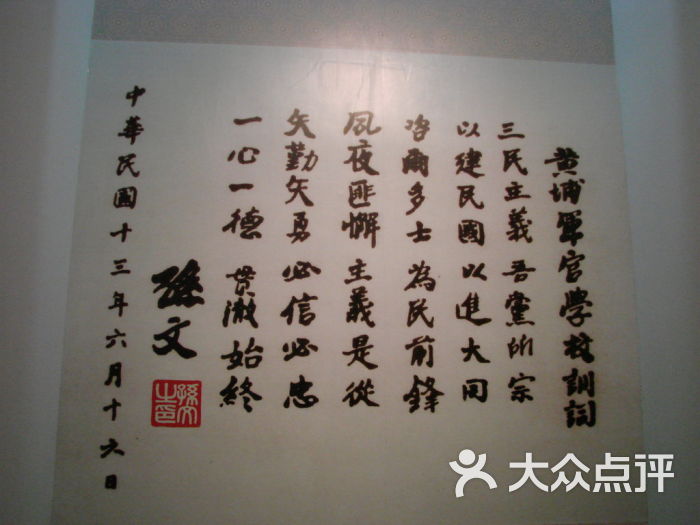 黄埔軍官學校訓詞
三民主義吾黨所宗
以建民國以進大同
咨爾多士為民前鋒
夙夜匪懈主義是從
矢勤矢勇必信必忠
一心一德貫澈始終
孫文
孫文之印
中華民國十三年六月十六日
大众点评